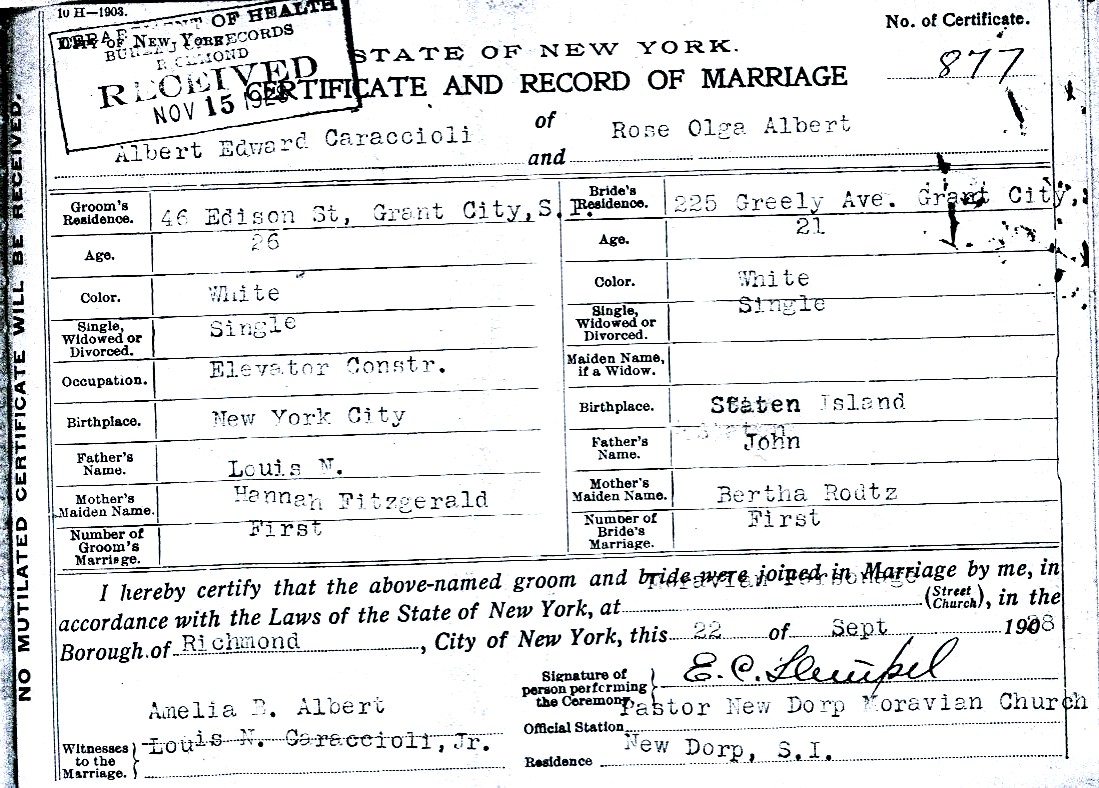 10 H—1903.
DEPARTMENT OF HEALTH
CITY OF NEW YORK
BUREAU RECORDS
RICHMOND
RECEIVED
NOV 15 1928
No. of Certificate.
877
STATE OF NEW YORK.
CERTIFICATE AND RECORD OF MARRIAGE
of
Albert Edward Caraccioli and Rose Olga Albert
Groom's Residence. 46 Edison St, Grant City, S. I.
Bride's Residence. 225 Greely Ave. Grant City,
Age. 26
Age. 21
Color. White
Color. White
Single, Widowed or Divorced. Single
Single, Widowed or Divorced. Single
Occupation. Elevator Constr.
Maiden Name, if a Widow.
Birthplace. New York City
Birthplace. Staten Island
Father's Name. Louis N.
Father's Name. John
Mother's Maiden Name. Hannah Fitzgerald
Mother's Maiden Name. Bertha Rodtz
Number of Groom's Marriage. First
Number of Bride's Marriage. First
I hereby certify that the above-named groom and bride were joined in Marriage by me, in
accordance with the Laws of the State of New York, at Moravian Parsonage (Street Church), in the
Borough of Richmond, City of New York, this 22 of Sept 1928
Signature of person performing the Ceremony E. C.
Pastor New Dorp Moravian Church
Official Station
Residence New Dorp, S.I.
Witnesses to the Marriage. Amelia B. Albert
Louis N. Caraccioli, Jr.
NO MUTILATED CERTIFICATE WILL BE RECEIVED.